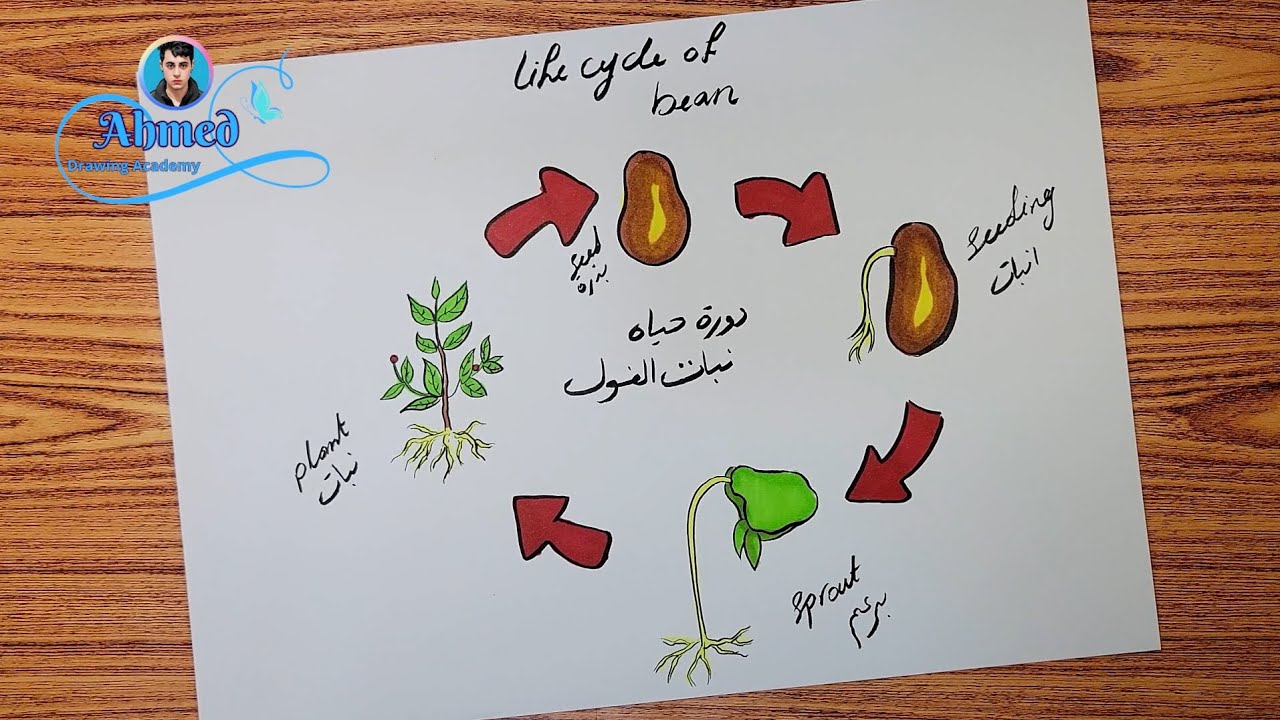 Ahmed
Drawing Academy
life cycle of
bean
seed
بذرة
seeding
انبات
دورة حياه
نبات الفول
plant
نبات
sprout
برعم